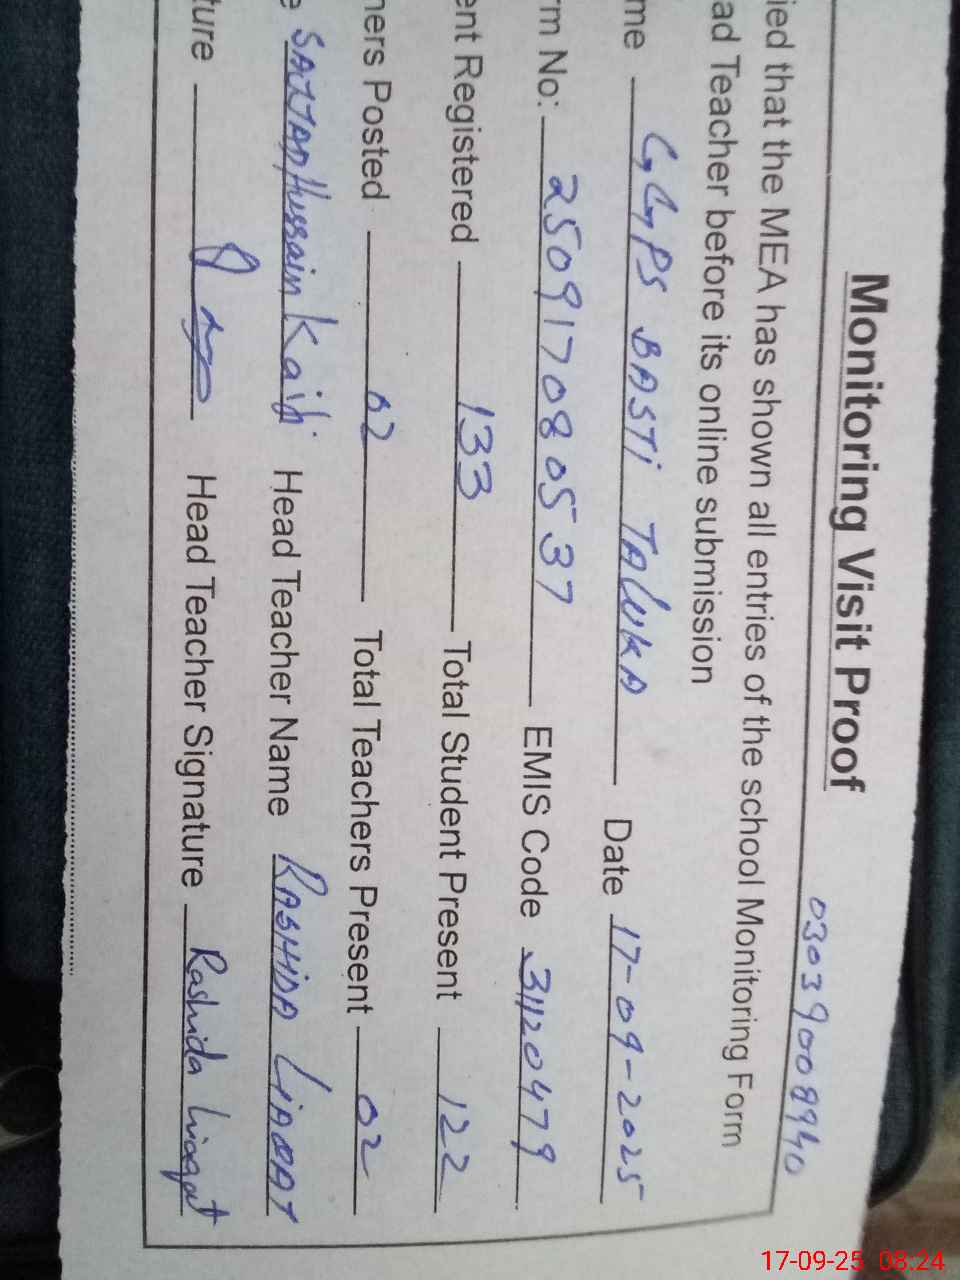 Monitoring Visit Proof
03039008940
ied that the MEA has shown all entries of the school Monitoring Form
ad Teacher before its online submission
me GGPS BASTI TALUKA Date 17-09-2025
rm No: 250917080537 EMIS Code 31120479
ent Registered 133 Total Student Present 122
ners Posted 02 Total Teachers Present 02
e SAJJAD Hussain Kaif Head Teacher Name RASHIDA LIAQAT
ture Head Teacher Signature Rashida Liaqat
17-09-25 08:24